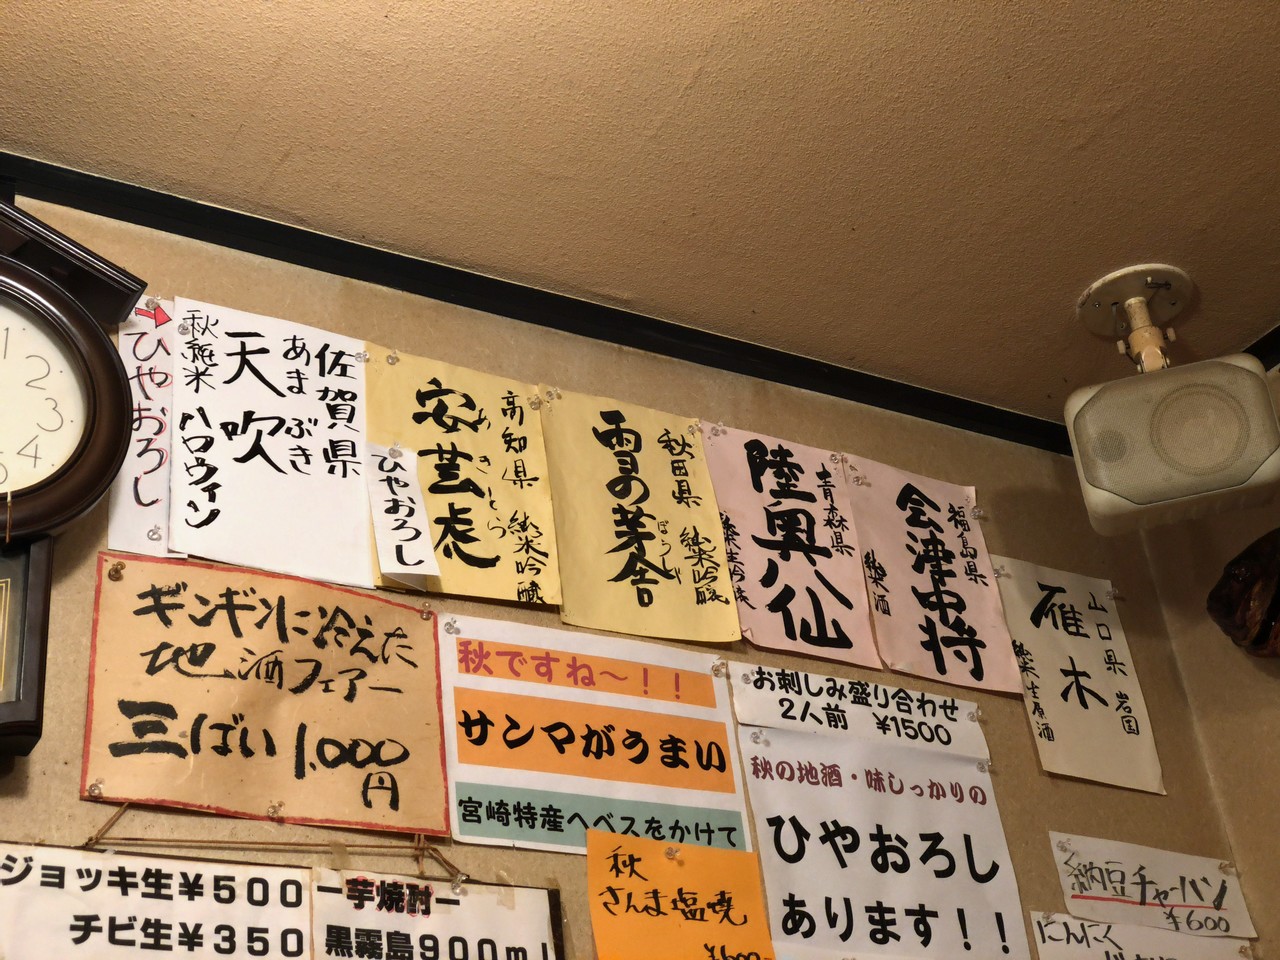 1
2
3
4
ひやおろし
佐賀県
あまぶき
天吹
秋純米 ハロウィン
高知県 純米吟醸
あきとら
安芸虎
ひやおろし
秋田県 純米吟醸
ぼうしゃ
雪の茅舎
青森県
陸奥八仙
福島県
会津中将
純米酒
山口県 岩国
雁木
純米生原酒
ギンギンに冷えた
地酒フェアー
三ばい 1,000円
秋ですね〜!!
サンマがうまい
宮崎特産ヘベスをかけて
お刺しみ盛り合わせ
2人前 ¥1500
秋の地酒・味しっかりの
ひやおろし
あります!!
秋
さんま塩焼
¥600
納豆チャーハン
¥600
にんにく
ジョッキ生¥500
チビ生¥350
ー芋焼酎ー
黒霧島900ml